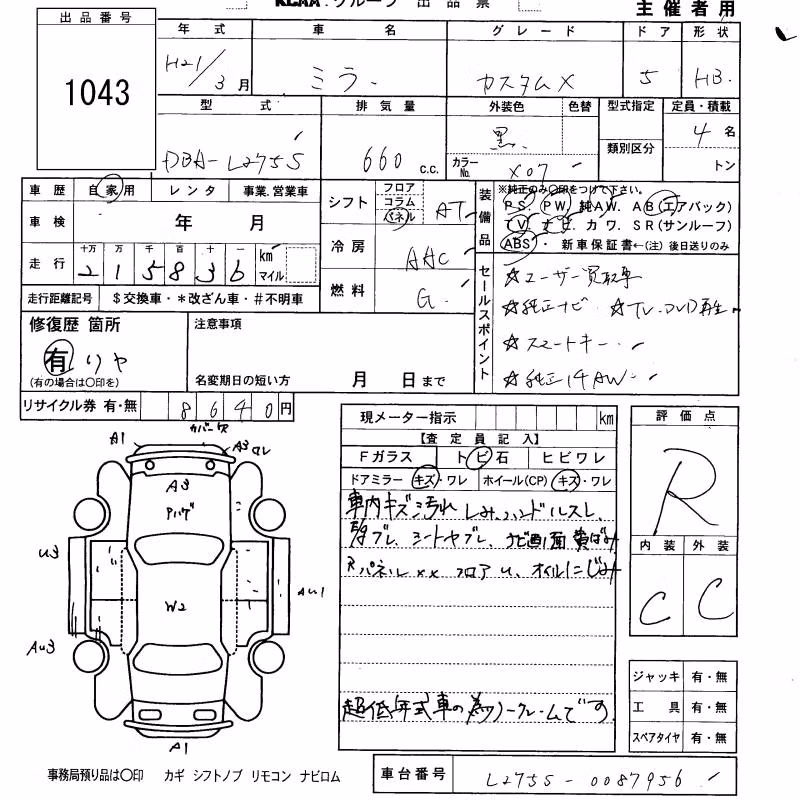 KCAA.グループ 出品票
主催者用
出品番号
1043
年式 車名 グレード ドア 形状
H21/3月 ミラ. カスタムX 5 HB.
型式 排気量 外装色 色替 型式指定 定員・積載
DBA-L275S 660 c.c. 黒. 4名
カラーNo. X07 類別区分 トン
車歴 自家用 レンタ 事業.営業車
シフト フロア コラム パネル AT
装備品
※純正のみ○印をつけて下さい。
PS. PW. 純AW. AB(エアバック)
TV. ナビ. カワ. SR(サンルーフ)
ABS・ 新車保証書←(注)後日送りのみ
車検 年 月
冷房 AAC
走行 十万 万 千 百 十 一 km マイル
215836
燃料 G.
走行距離記号 $交換車・*改ざん車・#不明車
セールスポイント
☆ユーザー買取車
☆純正ナビ ☆TV.DVD再生
☆スマートキー.
☆純正14AW
修復歴 箇所
有 リヤ
(有の場合は○印を)
注意事項
名変期日の短い方 月 日まで
リサイクル券 有・無 8640円
現メーター指示 km
【査定員記入】
Fガラス トビ石 ヒビワレ
ドアミラー キズ・ワレ ホイール(CP) キズ・ワレ
車内キズ汚れ シミ.ハンドルスレ
シートヤブレ、ナビ画面黄ばみ
Rパネルxx フロアU、オイルにじみ
超低年式車の為ノークレームです
評価点
R
内装 外装
C C
カバー欠
A1
A3 ワレ
A3
Pハゲ
U3
W2
AU1
AU3
A1
ジャッキ 有・無
工具 有・無
スペアタイヤ 有・無
事務局預り品は○印 カギ シフトノブ リモコン ナビロム
車台番号 L275S-0087956